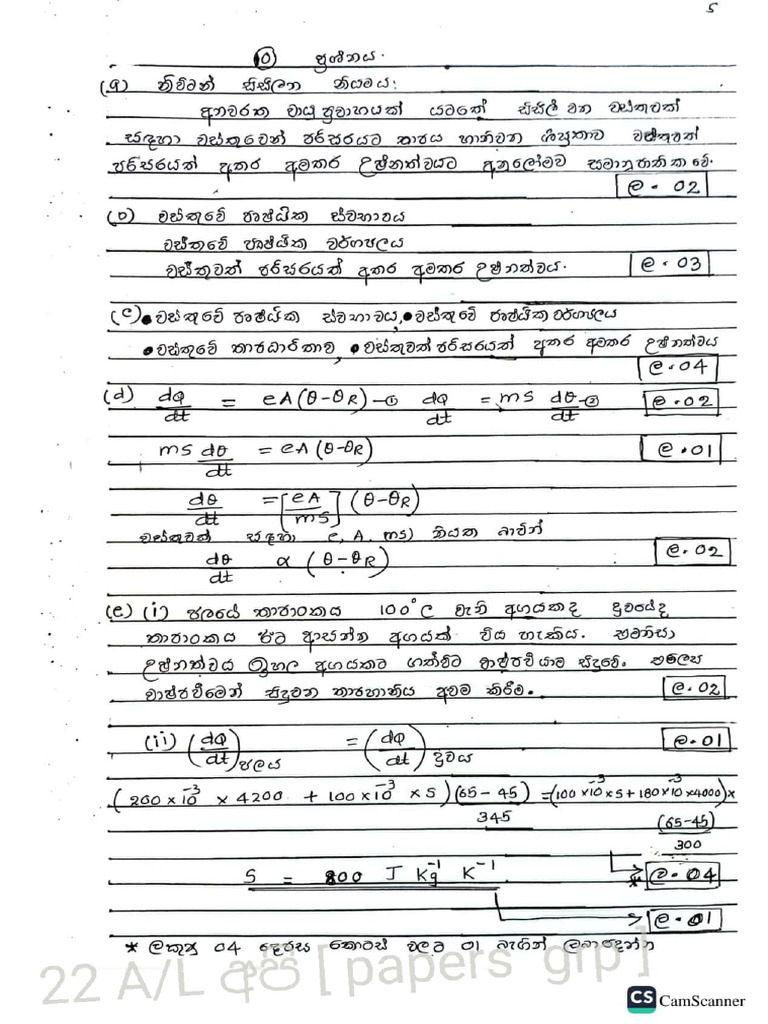 5
(10) ප්‍රශ්නය.
(a) නිව්ටන් සිසිලන නියමය:
අනවරත වායු ප්‍රවාහයක් යටතේ සිසිල් වන වස්තුවක්
සඳහා වස්තුවෙන් පරිසරයට තාපය හානිවන ශීඝ්‍රතාව වස්තුවත්
පරිසරයත් අතර අමතර උෂ්නත්වයට අනුලෝමව සමානුපාතික වේ.
ල. 02
(b) වස්තුවේ පෘෂ්ඨික ස්වභාවය
වස්තුවේ පෘෂ්ඨික වර්ගඵලය
වස්තුවත් පරිසරයත් අතර අමතර උෂ්නත්වය. ල. 03
(c) • වස්තුවේ පෘෂ්ඨික ස්වභාවය, • වස්තුවේ පෘෂ්ඨික වර්ගඵලය
• වස්තුවේ තාපධාරිතාව, • වස්තුවත් පරිසරයත් අතර අමතර උෂ්නත්වය
ල. 04
(d) dQ/dt = eA(θ-θR) - ① dQ/dt = ms dθ/dt - ② ල. 02
ms dθ/dt = eA(θ-θR) ල. 01
dθ/dt = [eA/ms] (θ-θR)
වස්තුවක් සඳහා e, A, ms) නියත බාවින්
dθ/dt α (θ-θR) ල. 02
(e) (i) ජලයේ තාපාංකය 100°C වැනි අගයකද ද්‍රවයේද
තාපාංකය ඊට ආසන්න අගයක් විය හැකිය. එමනිසා
උෂ්නත්වය ඉහල අගයකට ගත්විට වාෂ්පවීයාම සිදුවේ. එලෙස
වාෂ්පවීමෙන් සිදුවන තාපහානිය අවම කිරීම. ල. 02
(ii) (dQ/dt)ජලය = (dQ/dt)ද්‍රවය ල. 01
(200×10⁻³ × 4200 + 100×10⁻³ × s)(65-45)/345 = (100×10⁻³×s + 180×10⁻³×4000) × (65-45)/300
* ල. 04
S = 800 J Kg⁻¹ K⁻¹
ල. 01
* ලකුණු 04 දෙපස කොටස් වලට 01 බැගින් ලබාදෙන්න
22 A/L අපි [ papers grp ]
CS CamScanner